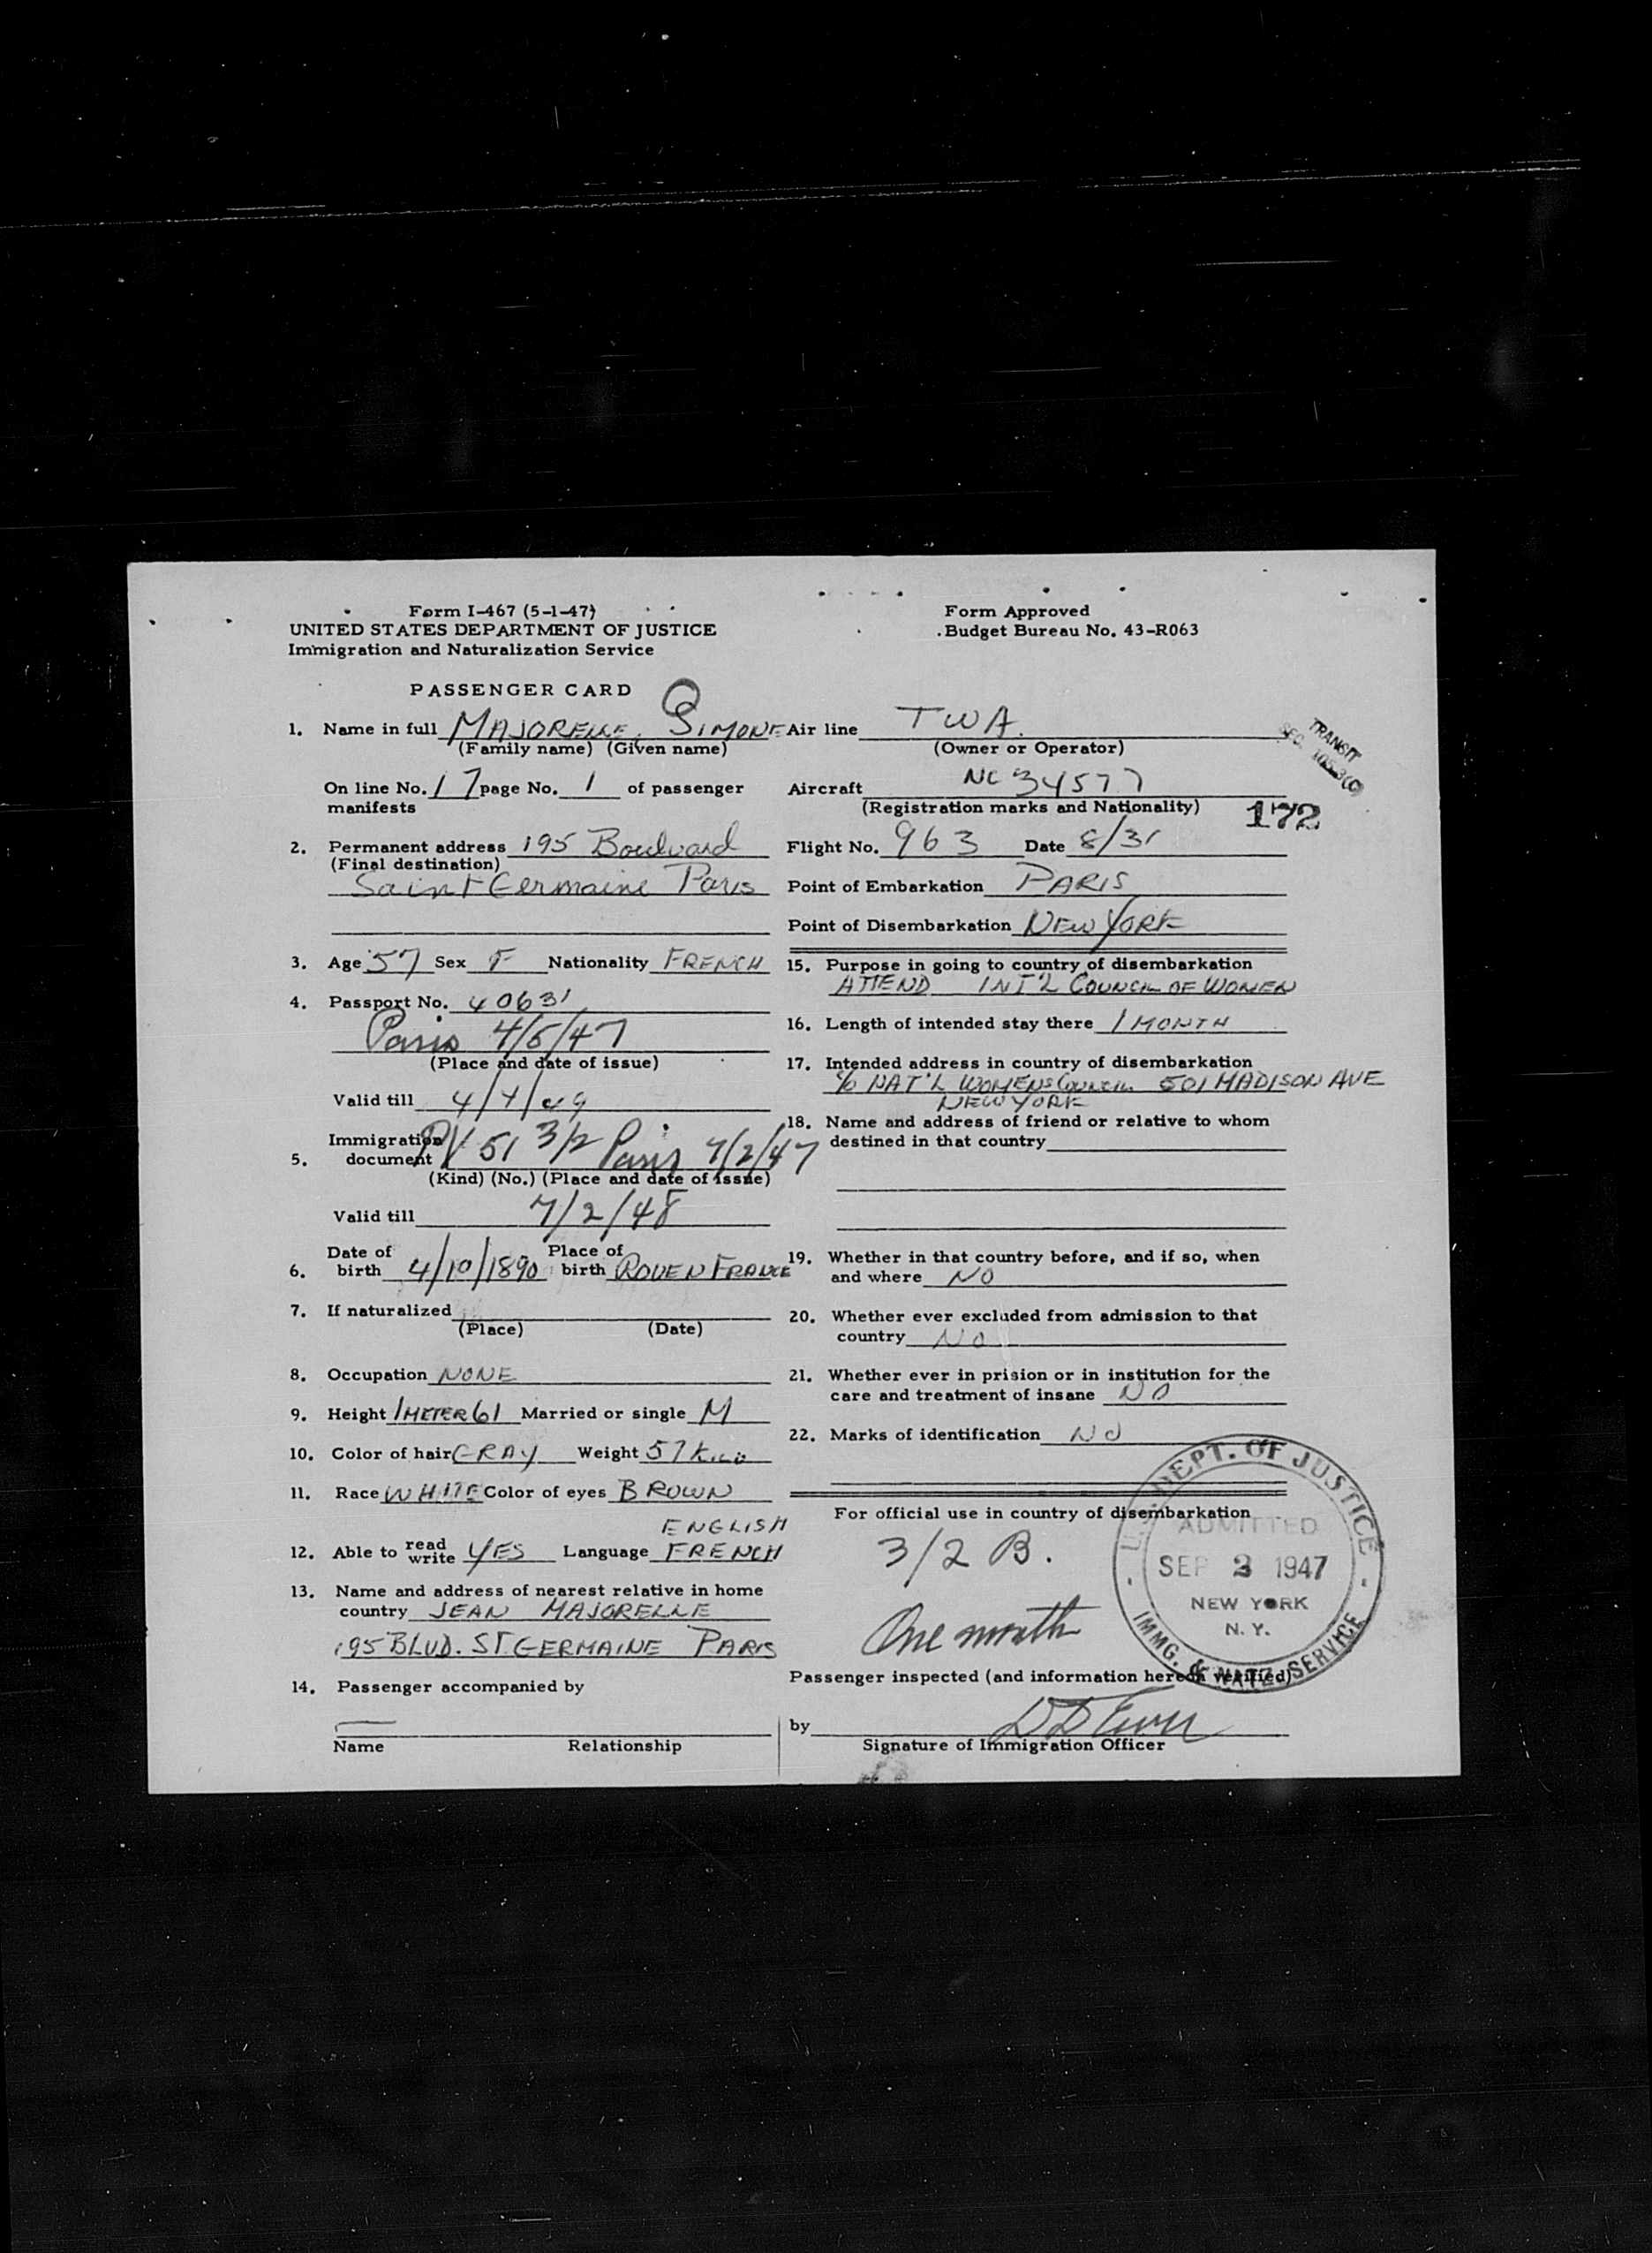 Form I-467 (5-1-47)
UNITED STATES DEPARTMENT OF JUSTICE
Immigration and Naturalization Service
Form Approved
Budget Bureau No. 43-R063
PASSENGER CARD
1. Name in full MAJORELLE, SIMONE
(Family name) (Given name)
On line No. 17 page No. 1 of passenger
manifests
2. Permanent address 195 Boulvard
(Final destination)
Saint Germaine Paris
3. Age 57 Sex F Nationality FRENCH
4. Passport No. 40631
Paris 4/5/47
(Place and date of issue)
Valid till 4/4/49
Immigration
5. document PV 51 3/2 Paris 7/2/47
(Kind) (No.) (Place and date of issue)
Valid till 7/2/48
Date of Place of
6. birth 4/10/1890 birth ROUEN FRANCE
7. If naturalized
(Place) (Date)
8. Occupation NONE
9. Height 1 METER 61 Married or single M
10. Color of hair GRAY Weight 57 KILO
11. Race WHITE Color of eyes BROWN
ENGLISH
12. Able to read write YES Language FRENCH
13. Name and address of nearest relative in home
country JEAN MAJORELLE
195 BLVD. ST. GERMAINE PARIS
14. Passenger accompanied by
Name Relationship
Air line TWA.
(Owner or Operator)
TRANSIT
SEC.
Aircraft NC 34577
(Registration marks and Nationality)
172
Flight No. 963 Date 8/31
Point of Embarkation PARIS
Point of Disembarkation NEW YORK
15. Purpose in going to country of disembarkation
ATTEND INT'L COUNCIL OF WOMEN
16. Length of intended stay there 1 MONTH
17. Intended address in country of disembarkation
c/o NAT'L WOMENS COUNCIL 501 MADISON AVE
NEW YORK
18. Name and address of friend or relative to whom
destined in that country
19. Whether in that country before, and if so, when
and where NO
20. Whether ever excluded from admission to that
country NO
21. Whether ever in prision or in institution for the
care and treatment of insane NO
22. Marks of identification NO
For official use in country of disembarkation
3/2 B.
One month
U.S. DEPT. OF JUSTICE
ADMITTED
SEP 3 1947
NEW YORK
N. Y.
IMMG. & NATZ. SERVICE
Passenger inspected (and information hereon verified)
by
Signature of Immigration Officer